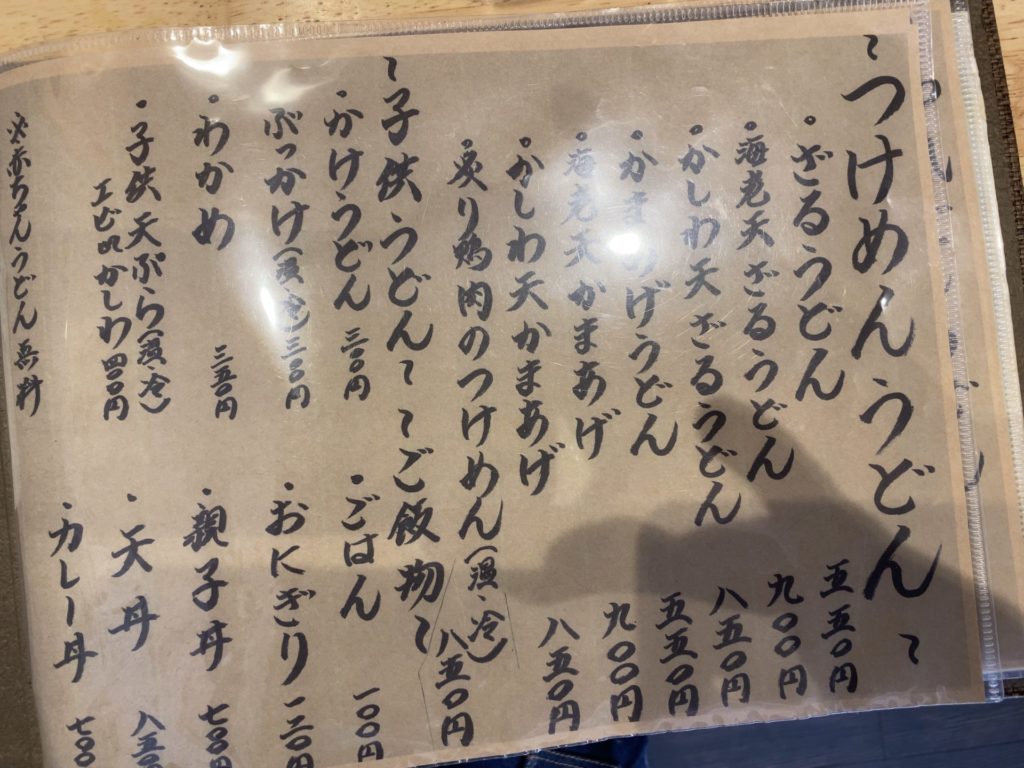 ~つけめんうどん~
・ざるうどん 五五〇円
・海老天ざるうどん 九〇〇円
・かしわ天ざるうどん 八五〇円
・かまあげうどん 五五〇円
・海老天かまあげ 九〇〇円
・かしわ天かまあげ 八五〇円
・炙り鶏肉のつけめん(温・冷) 八五〇円
~子供うどん~
・かけうどん 三〇〇円
ぶっかけ(温・冷)三〇〇円
・わかめ 三五〇円
・子供天ぷら(温・冷)
エビorかしわ 四〇〇円
※赤ちゃんうどん無料
~ご飯物~
・ごはん 一〇〇円
・おにぎり 一二〇円
・親子丼 七〇〇円
・天丼 八五〇
・カレー丼 七〇〇